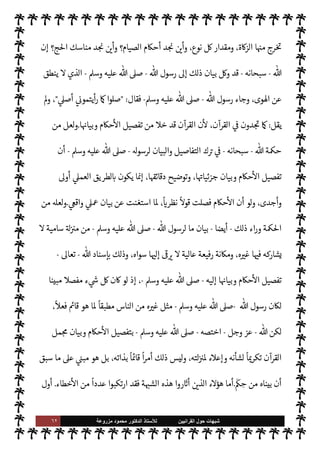 تخرج منها الزكاة، ومقدار كل نوع، وأين نجد أحكام الصيام؟ وأين نجد مناسك الحج؟ إن
الله - سبحانه - قد وكل بيان ذلك إلى رسول الله - صلى الله عليه وسلم - الذي لا ينطق
عن الهوى، وجاء رسول الله - صلى الله عليه وسلم- فقال: "صلوا كما رأيتموني أصلي"، ولم
يقل: كما تجدون في القرآن، لأن القرآن قد خلا من تفصيل الأحكام وبيانها.ولعل من
حكمة الله - سبحانه - في ترك التفاصيل والبيان لرسوله - صلى الله عليه وسلم - أن
تفصيل الأحكام وبيان جزئياتها، وتوضيح دقائقها، إنما يكون بالطريق العملي أولى
وأجدى، ولو أن الأحكام فصلت قولاً نظرياً، لما استغنت عن بيان عملي واقعي.ولعله من
الحكمة وراء ذلك - أيضا - بيان ما لرسول الله - صلى الله عليه وسلم - من منزلة سامية لا
يشاركه فيها غيره، ومكانة رفيعة عالية لا يرقى إليها سواه، وذلك بإسناد الله - تعالى -
تفصيل الأحكام وبيانها إليه - صلى الله عليه وسلم -، إذ لو كان كل شيء مفصلا مبينا
لكان رسول الله -صلى الله عليه وسلم - مثل غيره من الناس مطبقاً لما هو قائم فعلاً،
لكن الله - عز وجل - اختصه - صلى الله عليه وسلم - بتفصيل الأحكام وبيان مجمل
القرآن تكريماً لشأنه وإعلاء لمنزلته، وليس ذلك أمراً قائماً بذاته، بل هو مبني على ما سبق
أن بيناه من حكم.أما هؤلاء الذين أثاروا هذه الشبهة فقد ارتكبوا عدداً من الأخطاء. أول
شبهات حول القرآنيين للأستاذ الدكتور محمود مزروعة ٦٢